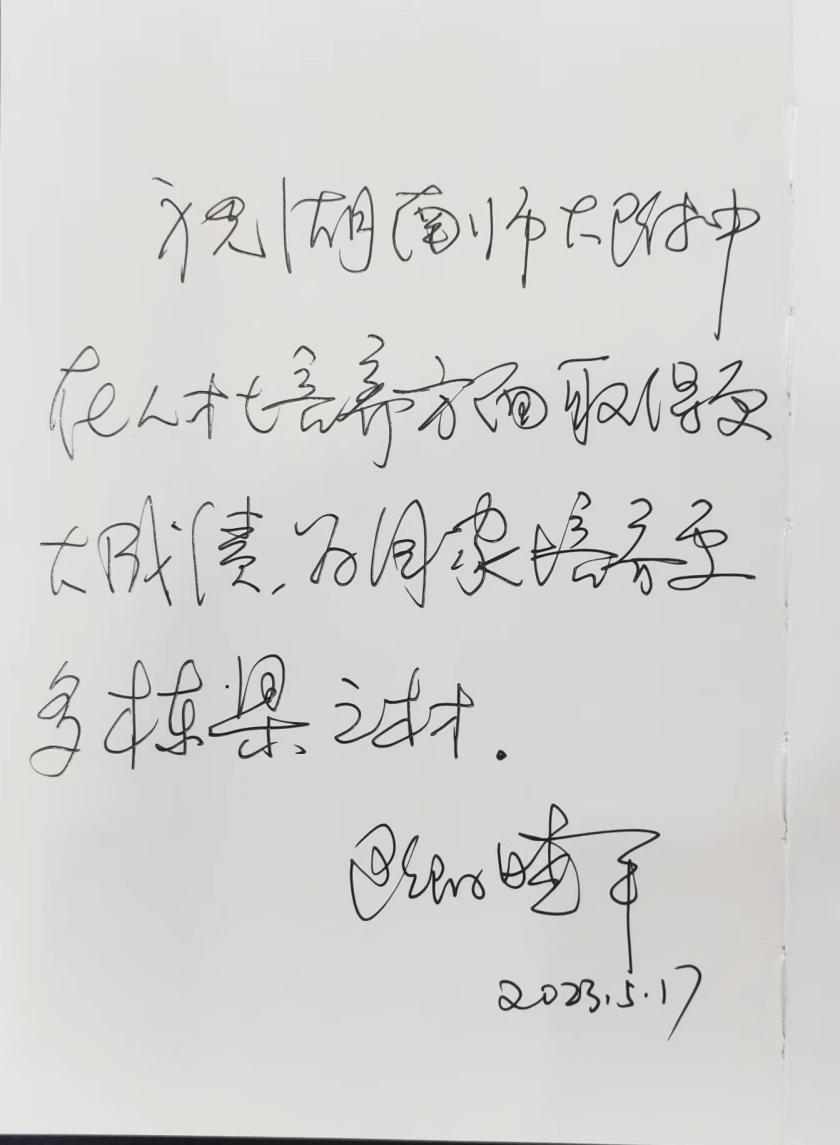 祝湖南师大附中
在人才培养方面取得更
大成绩,为国家培养更
多栋梁之材.
欧阳晓平
2023.5.17